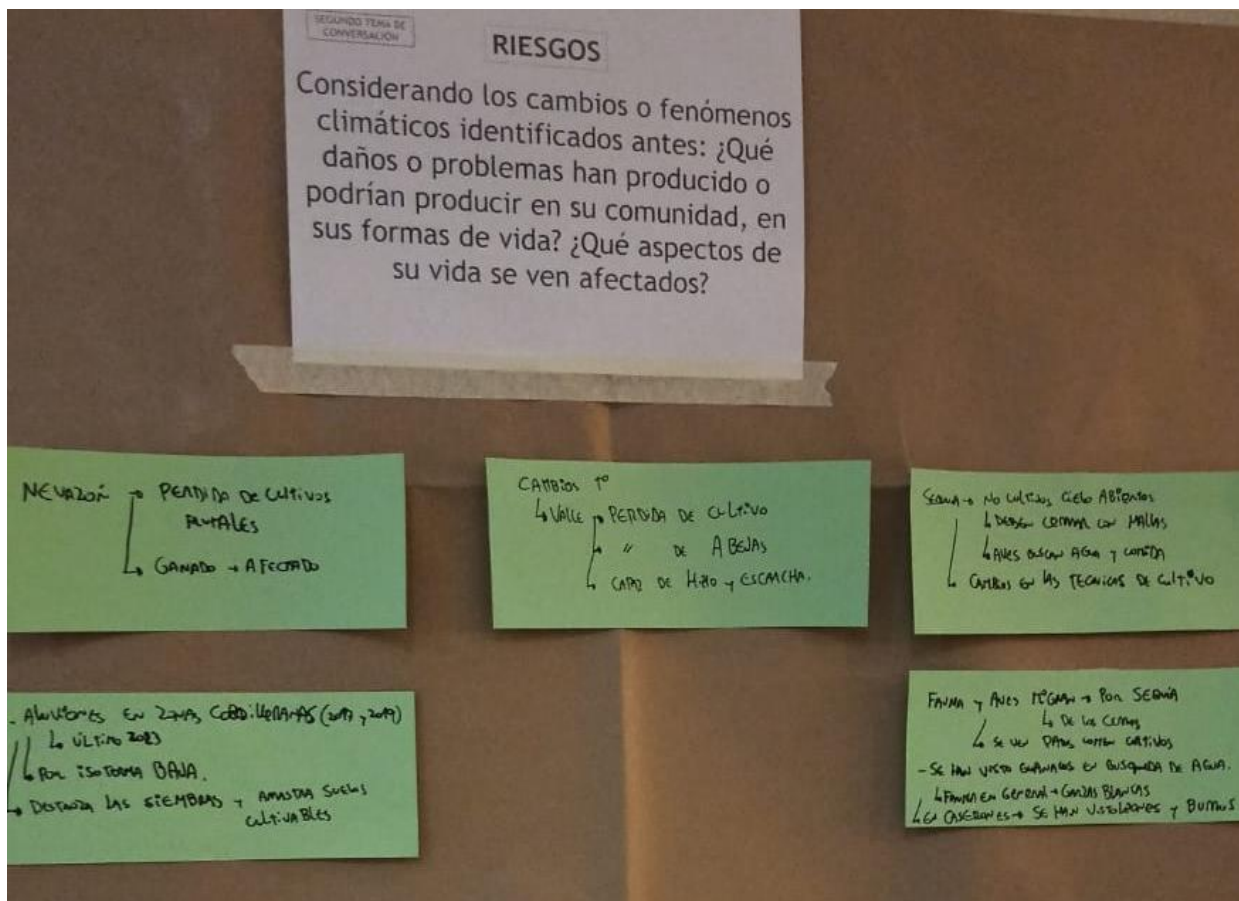 SEGUNDO TEMA DE
CONVERSACIÓN
RIESGOS
Considerando los cambios o fenómenos
climáticos identificados antes: ¿Qué
daños o problemas han producido o
podrían producir en su comunidad, en
sus formas de vida? ¿Qué aspectos de
su vida se ven afectados?
NEVAZÓN → PERDIDA DE CULTIVOS
FRUTALES
↳ GANADO → AFECTADO
CAMBIOS Tº
↳ VALLE → PERDIDA DE CULTIVO
↳ " DE ABEJAS
↳ CAPAZ DE HIELO y ESCARCHA.
SEQUIA → NO CULTIVOS CIELO ABIERTOS
↳ DEBEN CERRAR CON MALLAS
↳ AVES BUSCAN AGUA y COMIDA
↳ CAMBIOS EN LAS TECNICAS DE CULTIVO
- ALUVIONES EN ZONAS CORDILLERANAS (2017 y 2019)
↳ ULTIMO 2023
↳ POR ISOTERMA BAJA.
→ DESTROZA LAS SIEMBRAS y ARRASTRA SUELOS
CULTIVABLES
FAUNA y AVES MIGRAN → POR SEQUÍA
↳ DE LOS CERROS
↳ SE VEN PARA COMER CULTIVOS
- SE HAN VISTO GUANACOS EN BUSQUEDA DE AGUA.
↳ FAUNA EN GENERAL → GARZAS BLANCAS
↳ EN CASERONES → SE HAN VISTO LEONES y BURROS